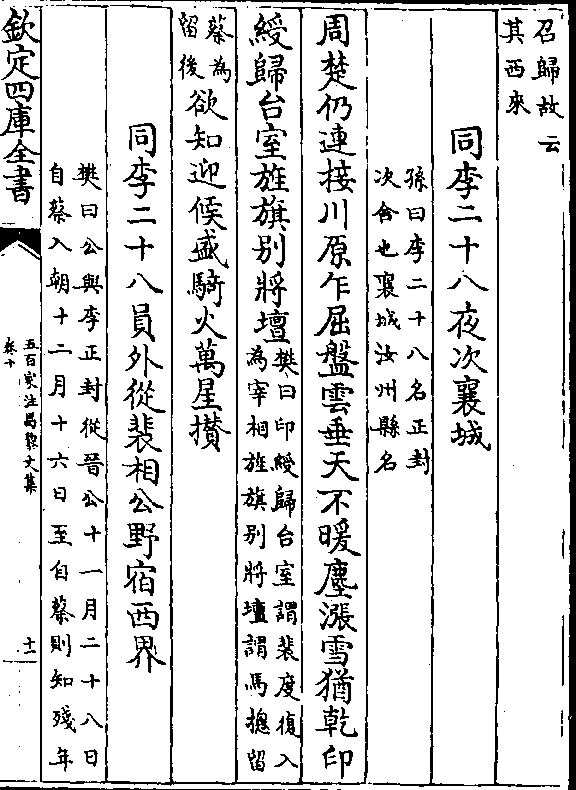 召歸故云
其西來
同李二十八夜次襄城
孫曰李二十八名正封
次舍也襄城汝州縣名
周楚仍連接川原乍屈盤雲垂天不暖塵漲雪猶乾印
綬歸台室旌旗别將壇
樊曰印綬歸台室謂裴度復入
為宰相旌旗别將壇謂馬摠留
蔡為
留後
欲知迎候盛騎火萬星攅
同李二十八員外從裴相公野宿西界
樊曰公與李正封從晉公十一月二十八日
自蔡入朝十二月十六日至自蔡則知殘年
欽定四庫全書
五百家注昌黎文集
卷十
十二